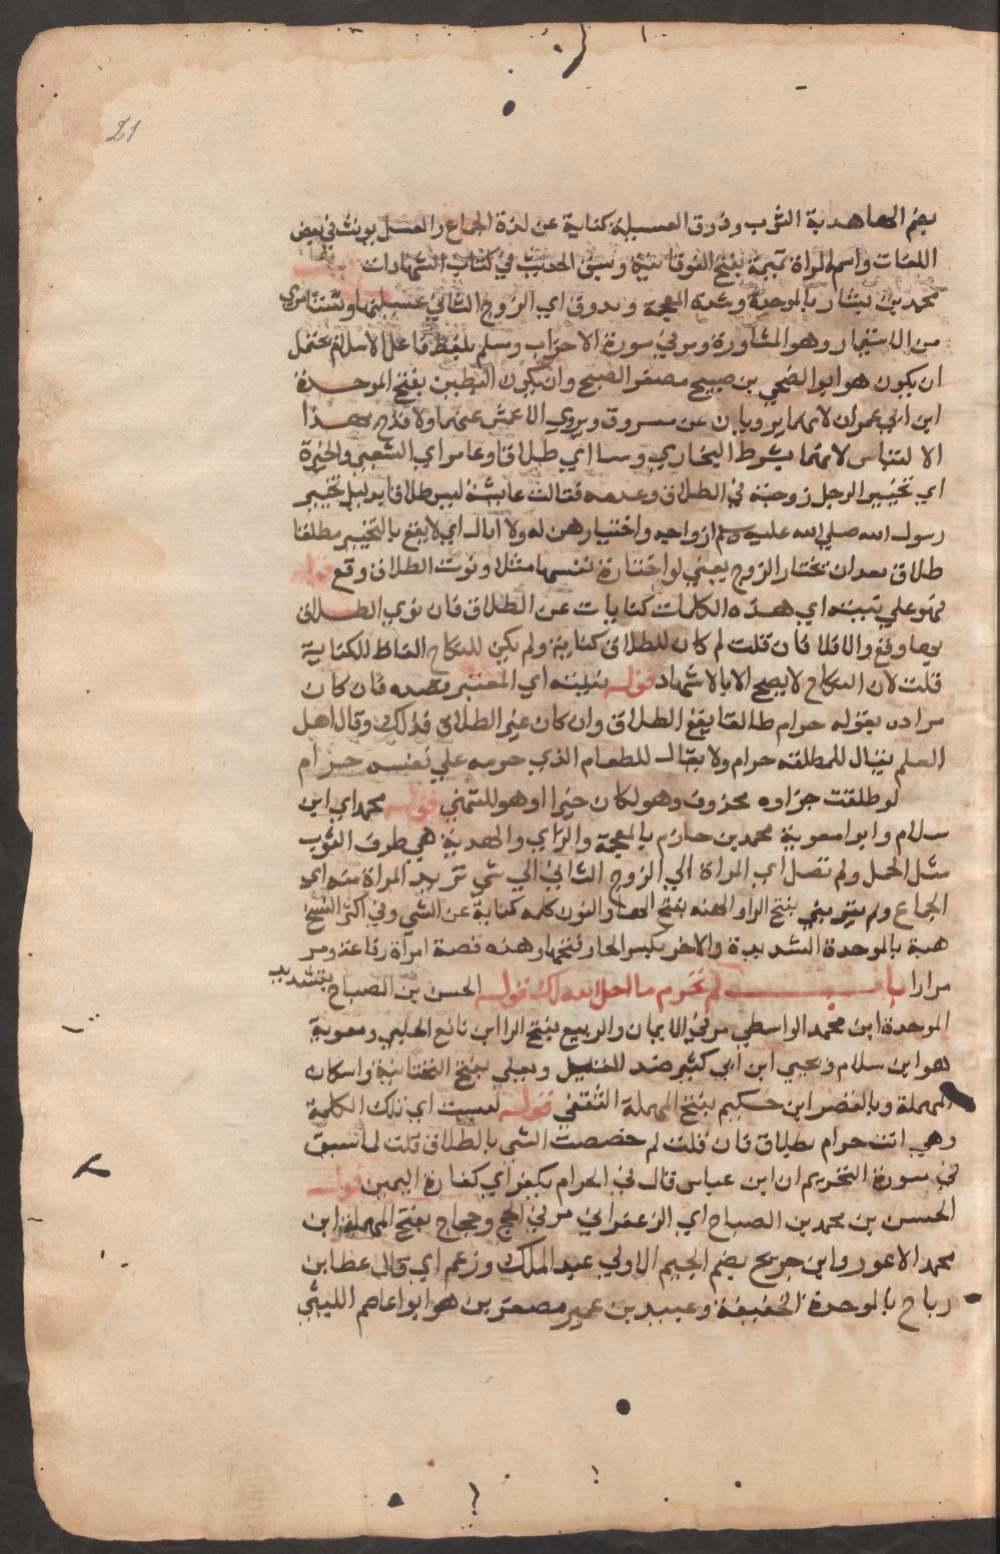 21
بضم الهاء هدبة الثوب وذوق العسيلة كناية عن لذة الجماع والعسل يونث في بعض
اللغات واسم المراة تميمة بفتح الفوقانية وسبق الحديث في كتاب الشهادات
محمد بن بشار بالموحدة وشدة المعجمة ويذوق اي الزوج الثاني عسيلتها وتستامري
من الاستيمار وهو المشاورة ومر في سورة الاحزاب ومسلم بلفظ فاعل الاسلام يحتمل
ان يكون هو ابو الضحي بن صبيح مصغر الصبح وان يكون البطين بفتح الموحدة
ابن ابي عمران لانهما يرويان عن مسروق ويروي الاعمش عنهما ولا قدح بهذا
الالتباس لانهما بشرط البخاري وسا اي طلاقا وعامر اي الشعبي والخيرة
اي تخيير الرجل زوجته في الطلاق وعدمه فقالت عايشة ليس طلاقا بدليل تخيير
رسول الله صلي الله عليه وسلم ازواجه واختيارهن له ولا ابالي اي لا يقع بالتخيير مطلقا
طلاق بعد ان تختار الزوج يعني لو اختارة نفسها مثلا ونوت الطلاق وقع قوله
فهو علي نيته اي هذه الكلمات كنايات عن الطلاق فان نوي الطلاق
بها وقع والا فلا فان قلت لم كان للطلاق كناية ولم يكن للنكاح الفاظ للكناية
قلت لان النكاح لا يصح الا بالاشهاد قوله بنيته اي المعتبر قصده فان كان
مراده بقوله حرام طالقا يقع الطلاق وان كان غير الطلاق فذلك وقال اهل
العلم يقال للمطلقة حرام ولا يقال للطعام الذي حرمه علي نفسه حرام
لو طلقت جزاوه محذوف وهو لكان خيرا او هو للتمني قوله محمد اي ابن
سلام وابو معوية محمد بن حازم بالمعجمة والزاي والهدبة هي طرف الثوب
مثل الخمل ولم تصل اي المراة الي الزوج الثاني الي شي تريد المراة منه اي
الجماع ولم يقربني بفتح الراء والهنه بفتح الهاء والنون كلمة كناية عن الشي وفي اكثر النسخ
هبة بالموحدة الشديدة والاخر بكسر الخا وفتحها وهذه قصة امراة رفاعة ومر
مرارا باب لم تحرم ما احل الله لك قوله الحسن بن الصباح بتشديد
الموحدة ابن محمد الواسطي مر في الايمان والربيع بفتح الرا ابن نافع الحلبي ومعوية
هو ابن سلام ويحيي ابن ابي كثير ضد القليل ويعلي بفتح التختانية واسكان
المهملة وبالقصر ابن حكيم بفتح المهملة الثقفي قوله ليست اي تلك الكلمة
وهي انت حرام بطلاق فان قلت لم خصصت الشي بالطلاق قلت لما سبق
في سورة التحريم ان ابن عباس قال في الحرام يكفر اي كفارة اليمين قوله
الحسن بن محمد بن الصباح اي الزعفراني مر في الحج وحجاج بفتح المهملة ابن
محمد الاعور وابن جريج بضم الجيم الاولي عبد الملك وزعم اي قال عطا بن
رباح بالموحدة الخفيفة وعبيد بن عمير مصغرين هو ابو عاصم الليثي